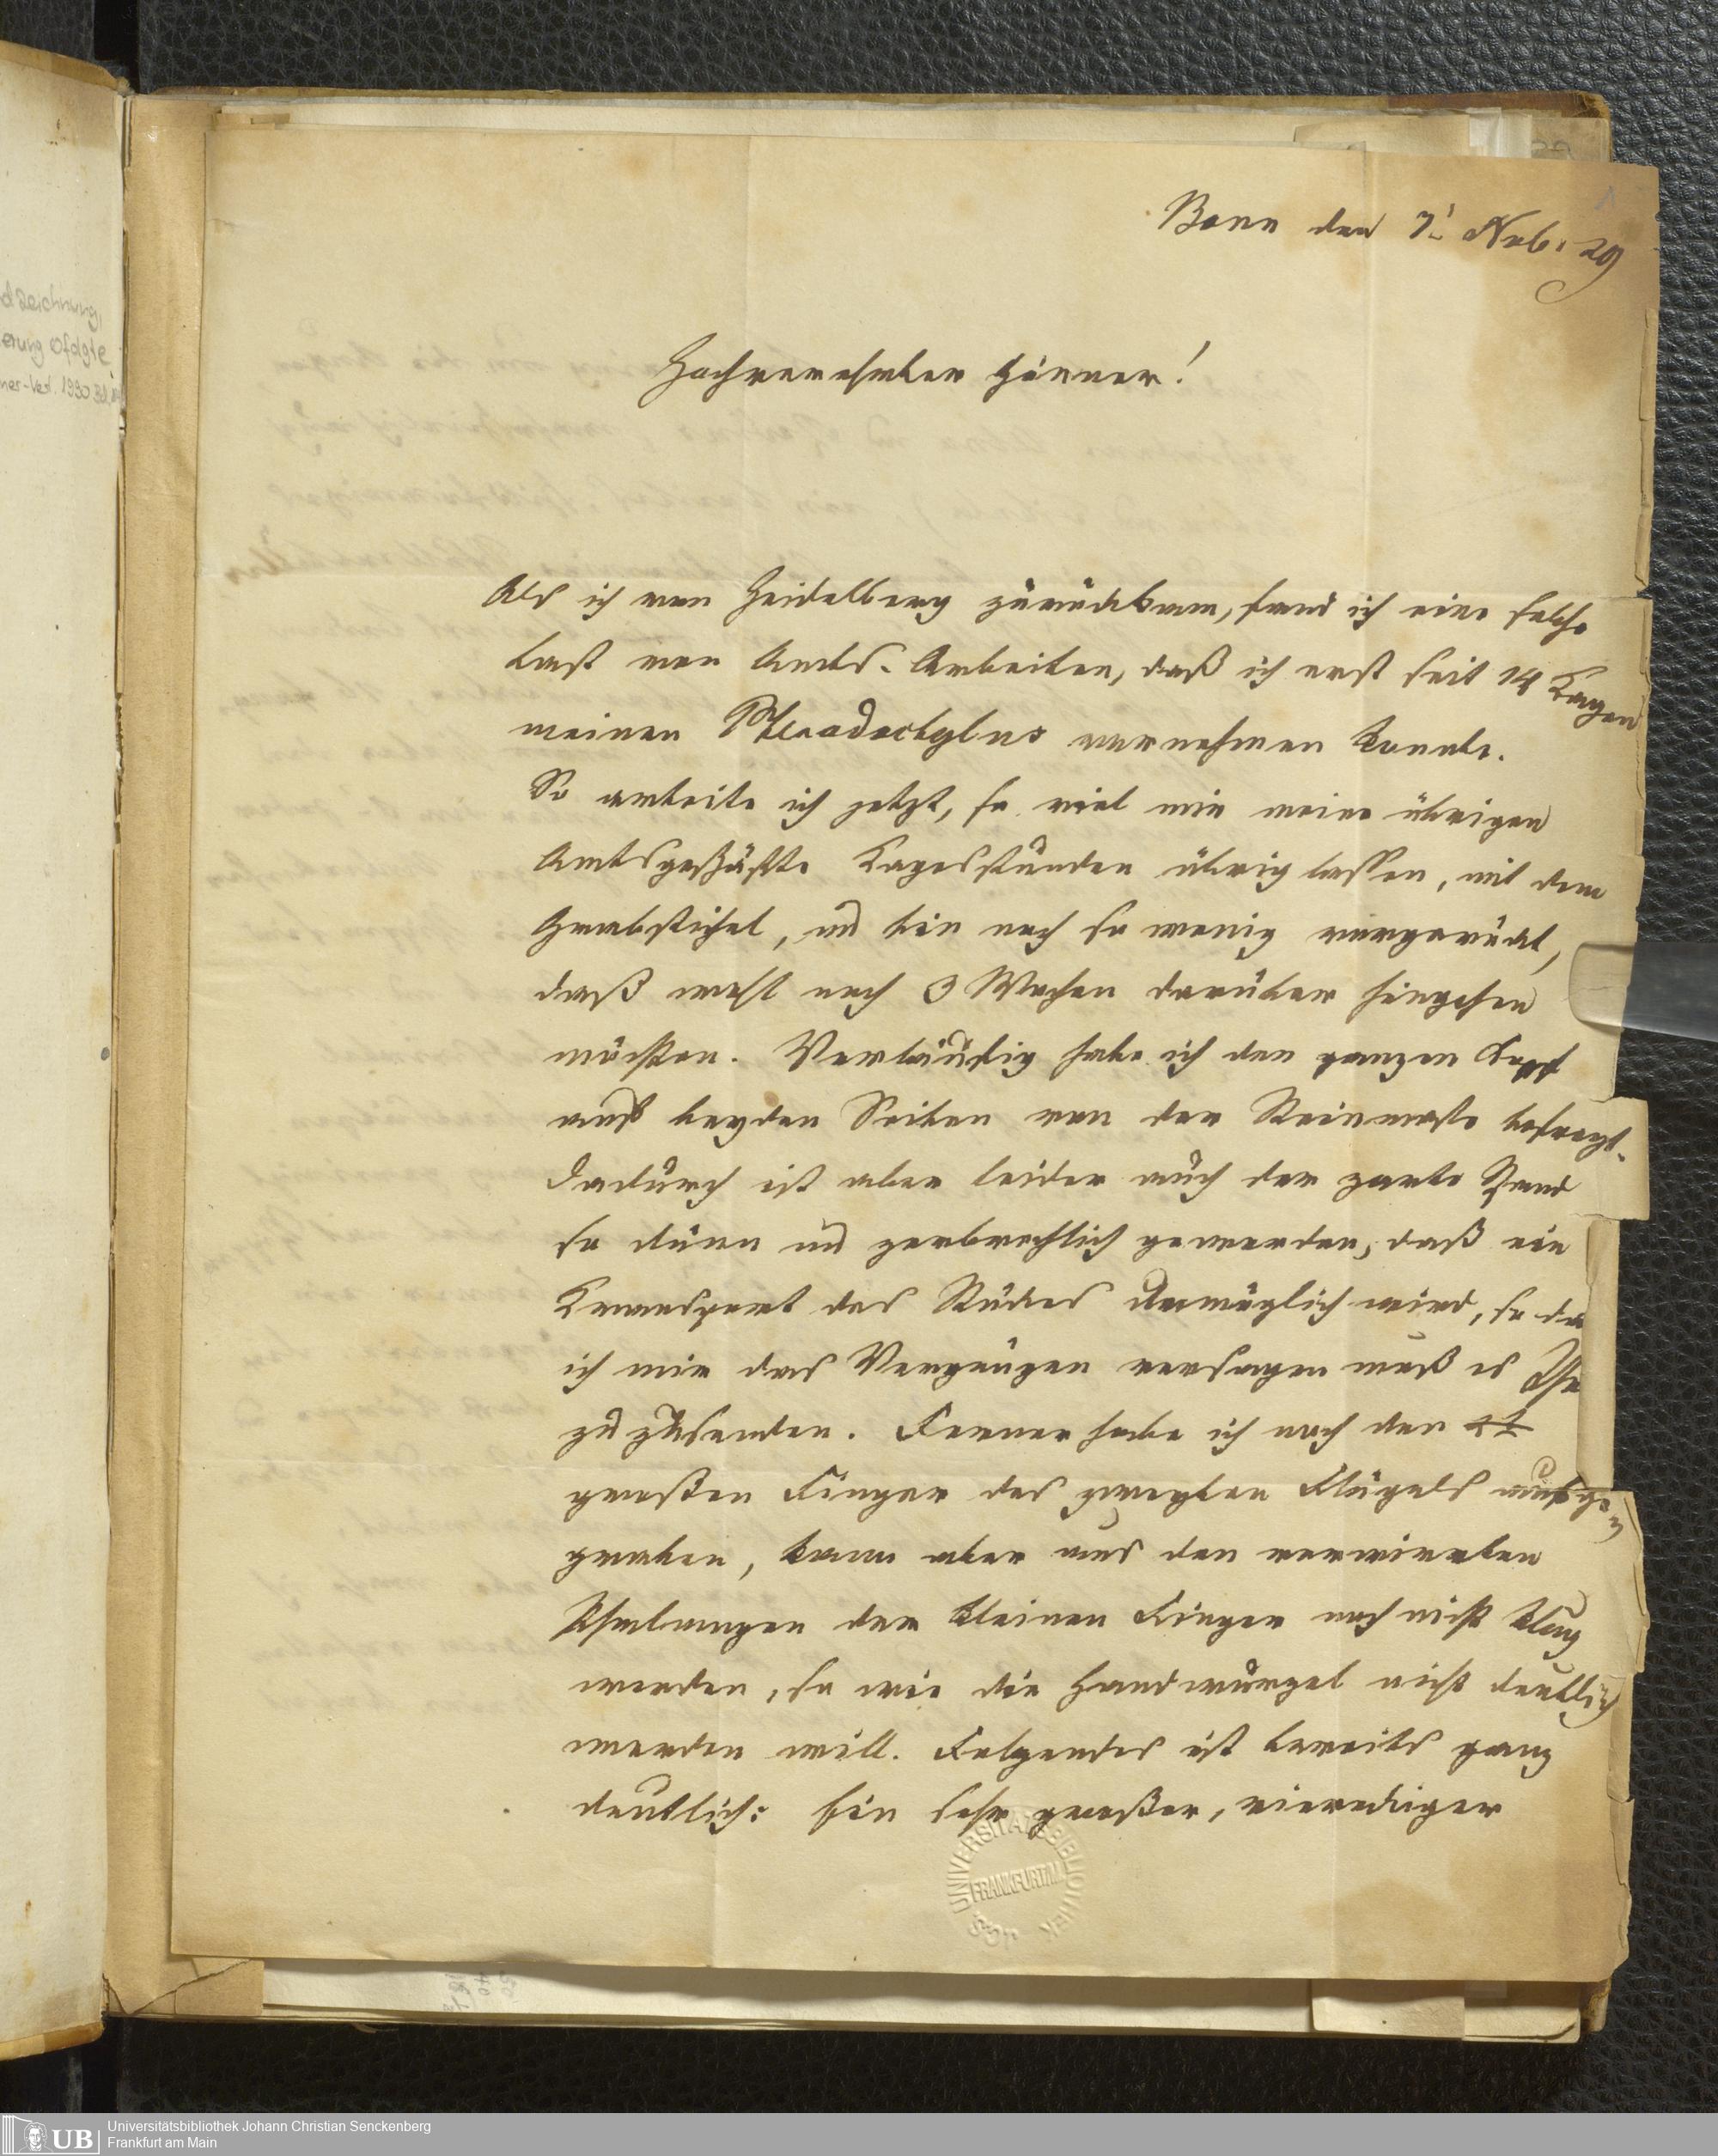 Bonn den 7ᵗ Nvb. 29
Hochverehrter Gönner!
Als ich von Heidelberg zurückkam, fand ich eine solche
Last von Amts-Arbeiten, daß ich erst seit 14 Tagen
meinen Pterodactylus vornehmen konnte.
So arbeite ich jetzt, so viel mir meine übrigen
Amtsgeschäfte Tagesstunden übrig lassen, mit dem
Grabstichel, und bin noch so wenig vorgerückt,
daß wohl noch 3 Wochen darüber hingehen
möchten. Vorläufig habe ich den ganzen Kopf
auf beyden Seiten von der Steinmasse befreyt.
Dadurch ist aber leider auch der zarte Rand
so dünn und zerbrechlich geworden, daß ein
Transport des Stückes unmöglich wird, so da
ich mir das Vergnügen versagen muß es Ihn
zuzusenden. Ferner habe ich noch den
großen Finger des zweyten Flügels ausge-
graben, kann aber aus den verwirrten
der kleinen Finger noch nicht klug
werden, so wie die Handwurzel nicht deutlich
werden will. Folgendes ist bereits ganz
deutlich: Ein sehr großer, viereckiger
UNIVERSITÄTSBIBLIOTHEK
FRANKFURT/M.
dzeichnung,
erung ofolgte
ner-Verl. 1990
UB
Universitätsbibliothek Johann Christian Senckenberg
Frankfurt am Main